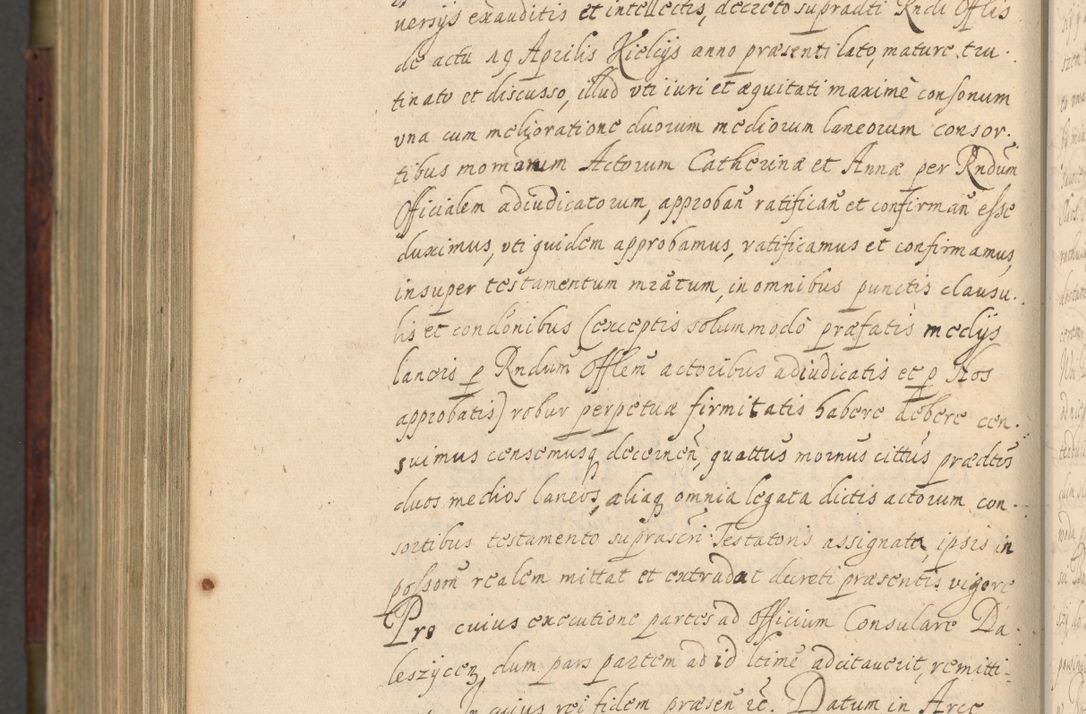 versijs exauditis et intellectis, decreto supradti Rndi Offlis
de actu 19 Aprilis Kielcijs anno præsenti lato, mature tru-
tinato et discusso, illud vti iuri et æquitati maximè consonum
vna cum melioratione duorum mediorum laneorum consor-
tibus momarum Actorum Catherinæ et Annæ per Rndum
Officialem adiudicatorum, approban̄ ratifican̄ et confirman̄ esse
duximus, vti quidem approbamus, ratificamus et confirmamus,
insuper testamentum mratum, in omnibus punctis clausu-
lis et condonibus (exceptis solummodo præfatis medijs
laneis p Rndum Offlem actoribus adiudicatis et p Nos
approbatis) robur perpetuæ firmitatis habere debere cen-
suimus censemusq decernen̄, quattus mornus cittus prædtus
duos medios laneos, aliaq omnia legata dictis actorum con-
sortibus testamento suprascri Testatoris assignata, ipsis in
possom realem mittat et extradat decreti præsentis vigore
Pro cuius executione partes ad Officium Consulare Da-
leszycen, dum pars partem ad id ltime adcitaverit, remitti-
cuius rei fidem præsen re. Datum in Arce